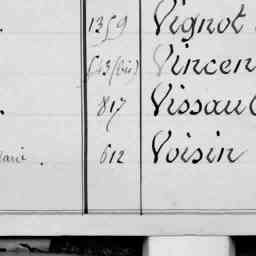 1359 Vignot
543 (bis) Vincen
817 Vissaul
612 Voisin